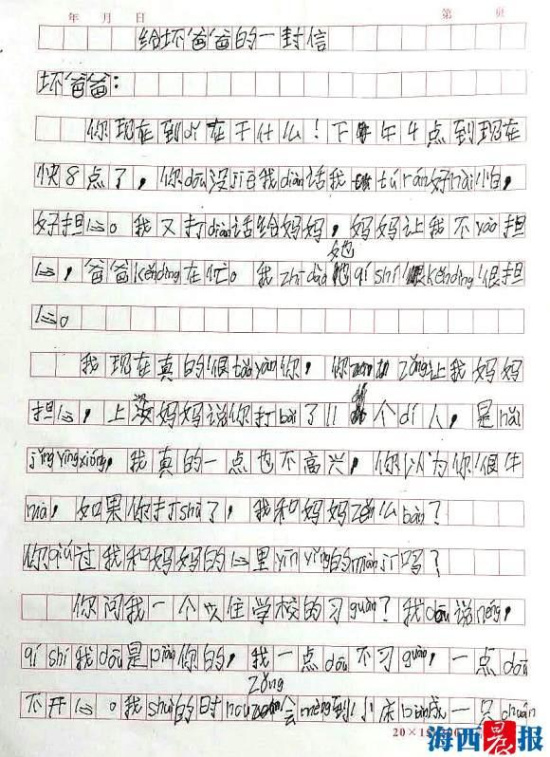 年 月 日 第 页
给坏爸爸的一封信
坏爸爸：
你现在到dǐ在干什么！下午4点到现在
快8点了，你dōu没jiē我diàn话我tú rán好hài怕，
好担心。我又打diàn话给妈妈，妈妈让我不yào担
心，爸爸kěnding在忙。我zhī dào她qí shí很kěnding很担
心。
我现在真的很tǎo yàn你，你zǒng让我妈妈
担心，上次妈妈说你打bài了11个dí人，是
jīng yīng xióng，我真的一点也不高兴，你以为你很牛
ma，如果你打shū了，我和妈妈zěn么bàn？
你qiú过我和妈妈的心里yīn yǐng的miàn jī吗？
你问我一个人住学校的习guàn？我dōu说néng，
qí shí我dōu是piàn你的，我一点dōu不习guàn，一点dōu
不开心。我shuì的时hou zǒng会mèng到小床biàn成一只chuán
20×15=300
海西晨报